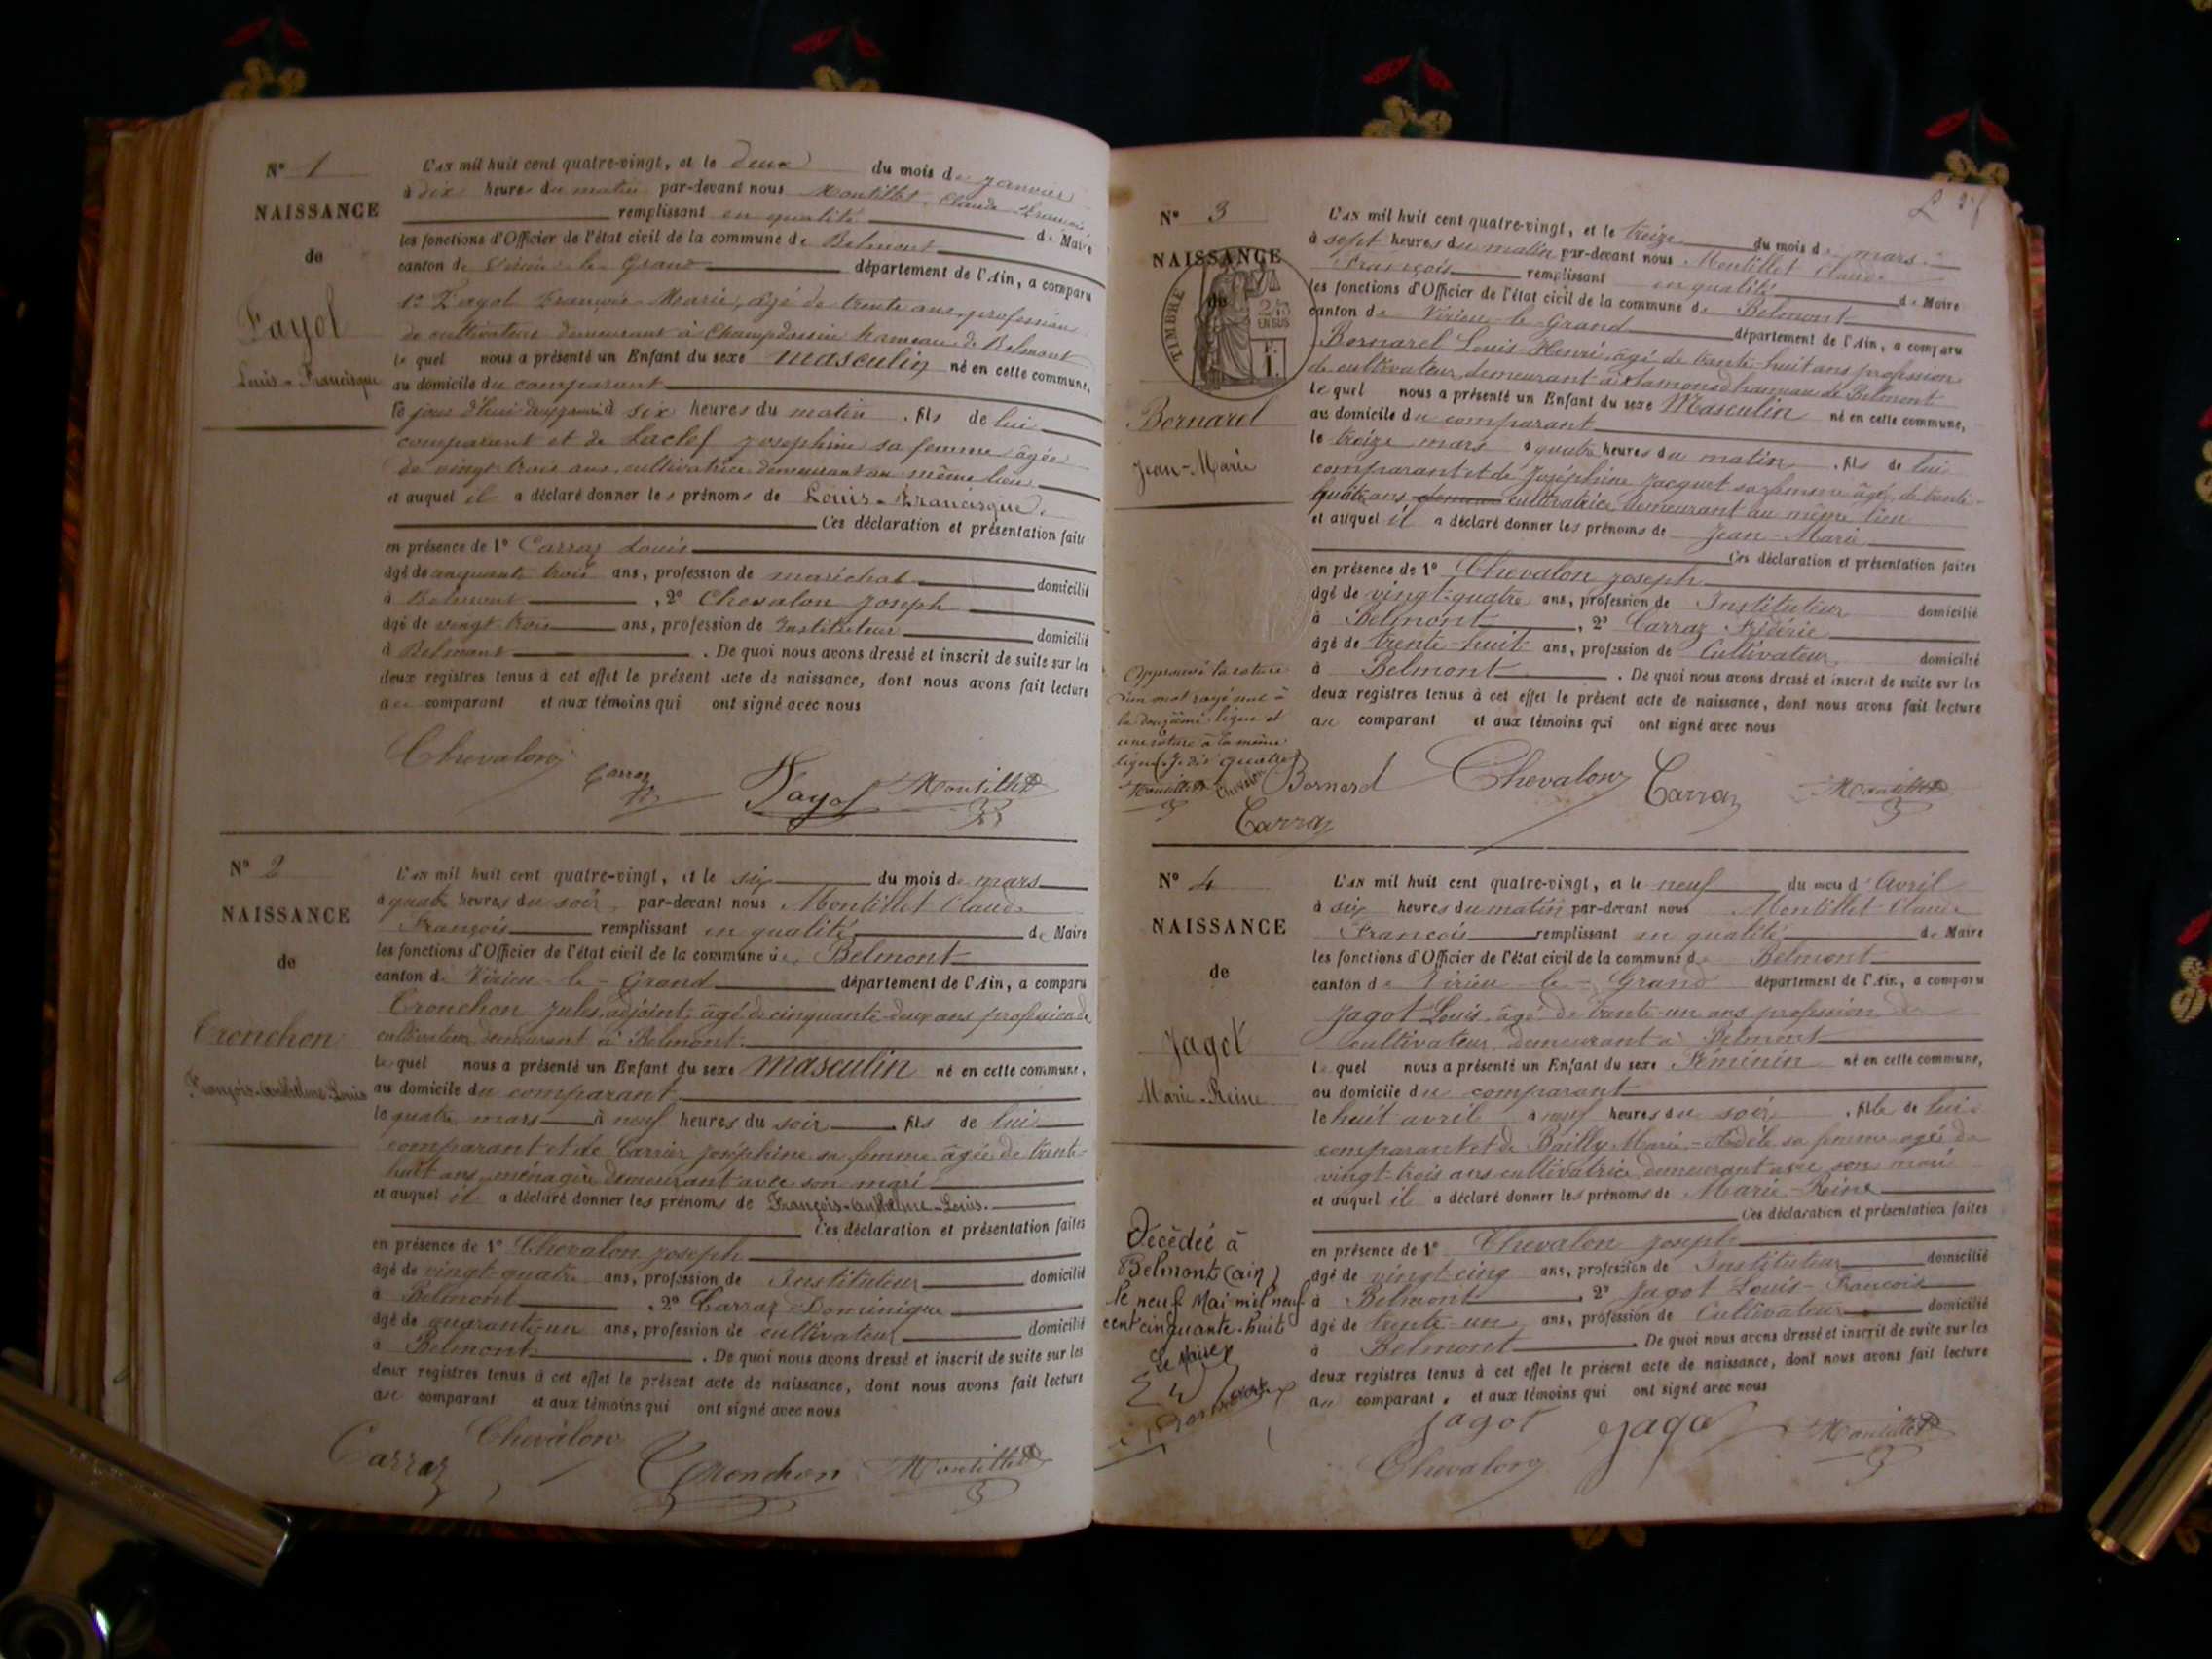 N° 1
NAISSANCE
de
Fayol
Louis-Francisque
L'AN mil huit cent quatre-vingt, et le deux du mois de janvier
à dix heures du matin par-devant nous Montillet, Claude François
remplissant en qualité de Maire
les fonctions d'Officier de l'état civil de la commune de Belmont
canton de Virieu-le-Grand département de l'Ain, a comparu
1° Fayol François-Marie, âgé de trente ans, profession
de cultivateur demeurant à Champdossin hameau de Belmont
le quel nous a présenté un Enfant du sexe masculin né en cette commune,
au domicile du comparant
le jour d'hui deux janvier à six heures du matin, fils de lui
comparant et de Laclef Joséphine sa femme âgée
de vingt-trois ans, cultivatrice demeurant au même lieu
et auquel il a déclaré donner les prénoms de Louis-Francisque.
Ces déclaration et présentation faite
en présence de 1° Carraz Louis
âgé de cinquante trois ans, profession de maréchal domicilié
à Belmont, 2° Chevalon Joseph
âgé de vingt-trois ans, profession de Instituteur domicilié
à Belmont. De quoi nous avons dressé et inscrit de suite sur les
deux registres tenus à cet effet le présent acte de naissance, dont nous avons fait lecture
au comparant et aux témoins qui ont signé avec nous
Chevalon Carraz Fayol Montillet
N° 2
NAISSANCE
de
Cronchon
François-Anthelme-Louis
L'AN mil huit cent quatre-vingt, et le six du mois de mars
à quatre heures du soir, par-devant nous Montillet Claude
François remplissant en qualité de Maire
les fonctions d'Officier de l'état civil de la commune de Belmont
canton de Virieu-le-Grand département de l'Ain, a comparu
Cronchon Jules, adjoint, âgé de cinquante-deux ans profession de
cultivateur demeurant à Belmont.
le quel nous a présenté un Enfant du sexe masculin né en cette commune,
au domicile du comparant
le quatre mars à neuf heures du soir, fils de lui
comparant et de Carrier Joséphine sa femme âgée de trente-
huit ans, ménagère demeurant avec son mari
et auquel il a déclaré donner les prénoms de François-Anthelme-Louis.
Ces déclaration et présentation faites
en présence de 1° Chevalon Joseph
âgé de vingt-quatre ans, profession de Instituteur domicilié
à Belmont, 2° Carraz Dominique
âgé de quarante-un ans, profession de cultivateur domicilié
à Belmont. De quoi nous avons dressé et inscrit de suite sur les
deux registres tenus à cet effet le présent acte de naissance, dont nous avons fait lecture
au comparant et aux témoins qui ont signé avec nous
Carraz Chevalon Cronchon Montillet
N° 3
NAISSANCE
de
TIMBRE
2/10
EN SUS
F.
1.
Bornarel
Jean-Marie
L'AN mil huit cent quatre-vingt, et le treize du mois de mars
à sept heures du matin par-devant nous Montillet Claude
François remplissant en qualité de Maire
les fonctions d'Officier de l'état civil de la commune de Belmont
canton de Virieu-le-Grand département de l'Ain, a comparu
Bornarel Louis-Henri, âgé de trente-huit ans profession
de cultivateur, demeurant à hameau de Belmont
le quel nous a présenté un Enfant du sexe Masculin né en cette commune,
au domicile du comparant
le treize mars à quatre heures du matin, fils de lui
comparant et de Joséphine Jacquet sa femme âgé de trente-
quatre ans cultivatrice, demeurant au même lieu
et auquel il a déclaré donner les prénoms de Jean-Marie
Ces déclaration et présentation faites
en présence de 1° Chevalon Joseph
âgé de vingt-quatre ans, profession de Instituteur domicilié
à Belmont, 2° Carraz Frédéric
âgé de trente-huit ans, profession de Cultivateur domicilié
à Belmont. De quoi nous avons dressé et inscrit de suite sur les
deux registres tenus à cet effet le présent acte de naissance, dont nous avons fait lecture
au comparant et aux témoins qui ont signé avec nous
Approuvé la rature
d'un mot rayé nul à
la douzième ligne et
une rature à la même
ligne
Montillet Chevalon Bornard Chevalon Carraz Montillet
Carraz
N° 4
NAISSANCE
de
Jagot
Marie-Reine
L'AN mil huit cent quatre-vingt, et le neuf du mois d'Avril
à six heures du matin par-devant nous Montillet Claude
François remplissant en qualité de Maire
les fonctions d'Officier de l'état civil de la commune de Belmont
canton de Virieu-le-Grand département de l'Ain, a comparu
Jagot Louis, âgé de trente-un ans profession de
cultivateur, demeurant à Belmont
le quel nous a présenté un Enfant du sexe Féminin né en cette commune,
au domicile du comparant
le huit avril à neuf heures du soir, fille de lui
comparant et de Bailly Marie-Adèle sa femme agée de
vingt-trois ans cultivatrice, demeurant avec son mari
et auquel il a déclaré donner les prénoms de Marie-Reine
Ces déclaration et présentation faites
en présence de 1° Chevalon Joseph
âgé de vingt-cinq ans, profession de Instituteur domicilié
à Belmont, 2° Jagot Louis-François
âgé de trente-un ans, profession de Cultivateur domicilié
à Belmont. De quoi nous avons dressé et inscrit de suite sur les
deux registres tenus à cet effet le présent acte de naissance, dont nous avons fait lecture
au comparant, et aux témoins qui ont signé avec nous
Décédée à
Belmont (ain)
le neuf Mai mil neuf
cent cinquante-huit
Le Maire
Jagot Jagot Montillet
Chevalon